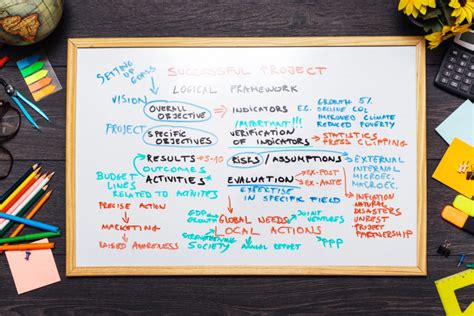 SETTING UP GOALS
SUCCESSFUL PROJECT
LOGICAL FRAMEWORK
VISION
OVERALL OBJECTIVE
INDICATORS E.G.
GROWTH 5%
DECLINE CO2
IMPROVED CLIMATE
REDUCED POVERTY
IMPORTANT!!!
PROJECT
SPECIFIC OBJECTIVES
VERIFICATION OF INDICATORS
STATISTICS
PRESS CLIPPING
RESULTS 5-10
OUTCOMES
RISKS / ASSUMPTIONS
EXTERNAL
INTERNAL
MICROEC.
MACROEC.
BUDGET LINES
ACTIVITIES
RELATED TO ACTIVITES
EVALUATION
EX-POST
EX-ANTE
EXPERTISE
IN SPECIFIC FIELD
INFLATION
NATURAL DISASTERS
UNREST
PROJECT PARTNERSHIP
PRECISE ACTION
MARKETING
RAISED AWARENESS
GDP GROWTH
GLOBAL NEEDS
LOCAL ACTIONS
JOINT VENTURES
STRENGTHENING SOCIETY
ANNUAL REPORT
PPP